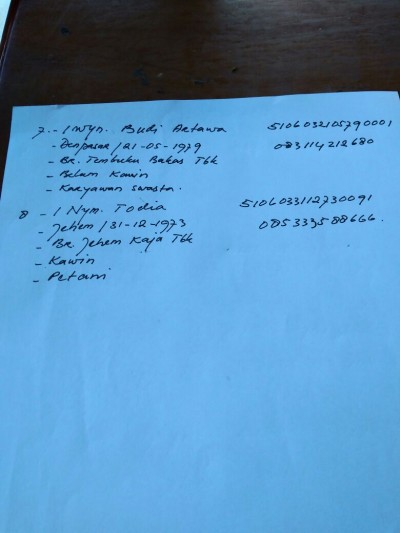 7. - I Wyn. Budi Artawa 5106032105790001
- Denpasar / 21-05-1979 083114212680
- Br. Tembuku Bakas Tbk
- Belum Kawin
- Karyawan Swasta.
8 - I Nym. Todia 5106033112730091
- Jehem / 31-12-1973 085333588666.
- Br. Jehem Kaja Tbk
- Kawin
- Petani